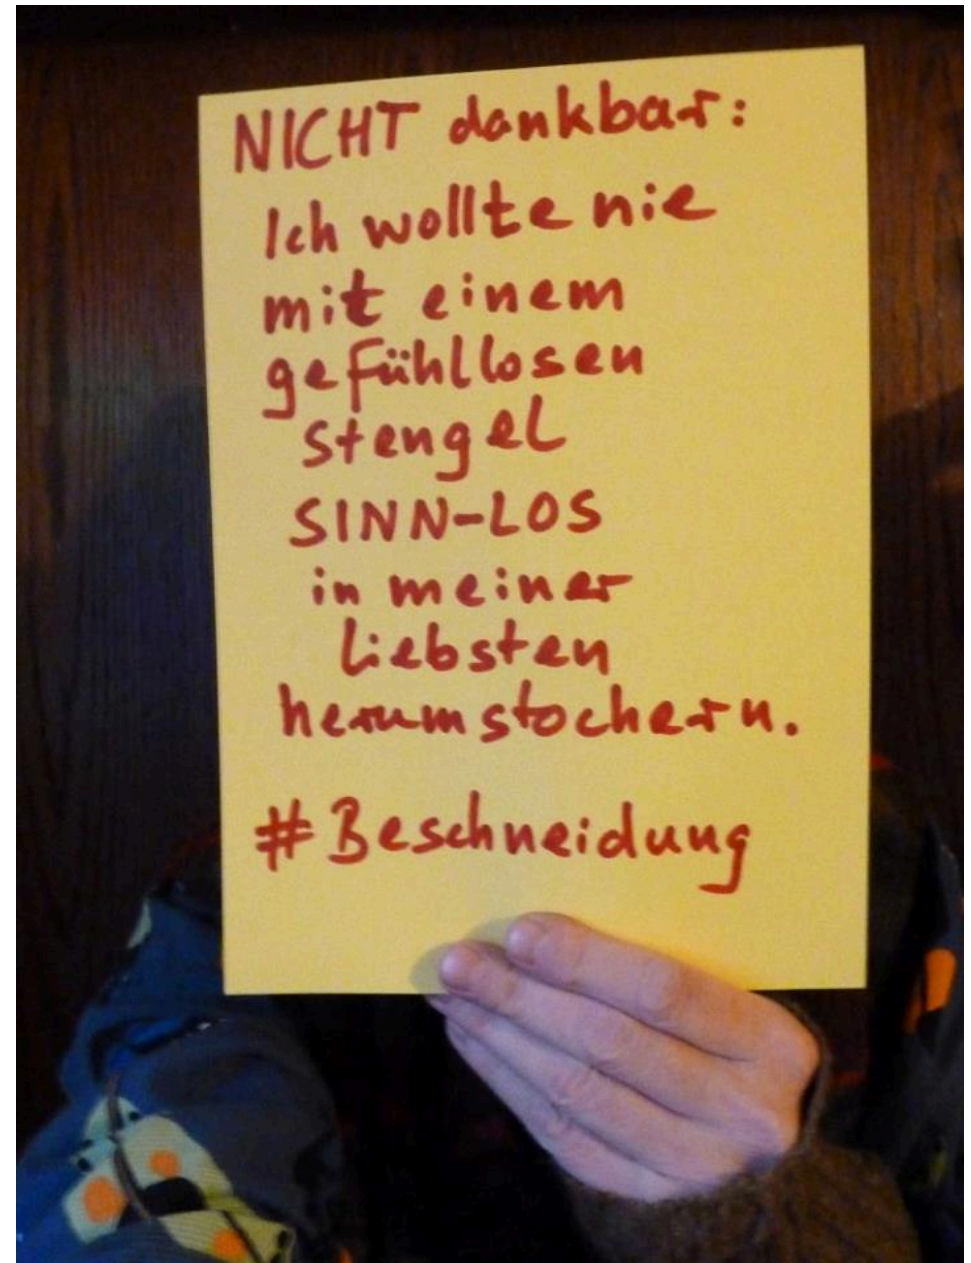 NICHT dankbar:
Ich wollte nie
mit einem
gefühllosen
Stengel
SINN-LOS
in meiner
Liebsten
herumstochern.
#Beschneidung